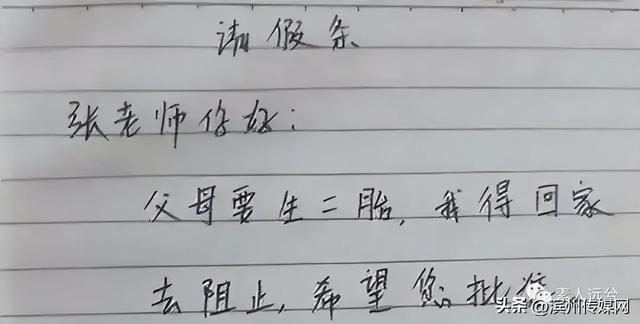 请假条
张老师你好:
父母要生二胎,我得回家
去阻止,希望您批准
素人远台
头条@滨州传媒网